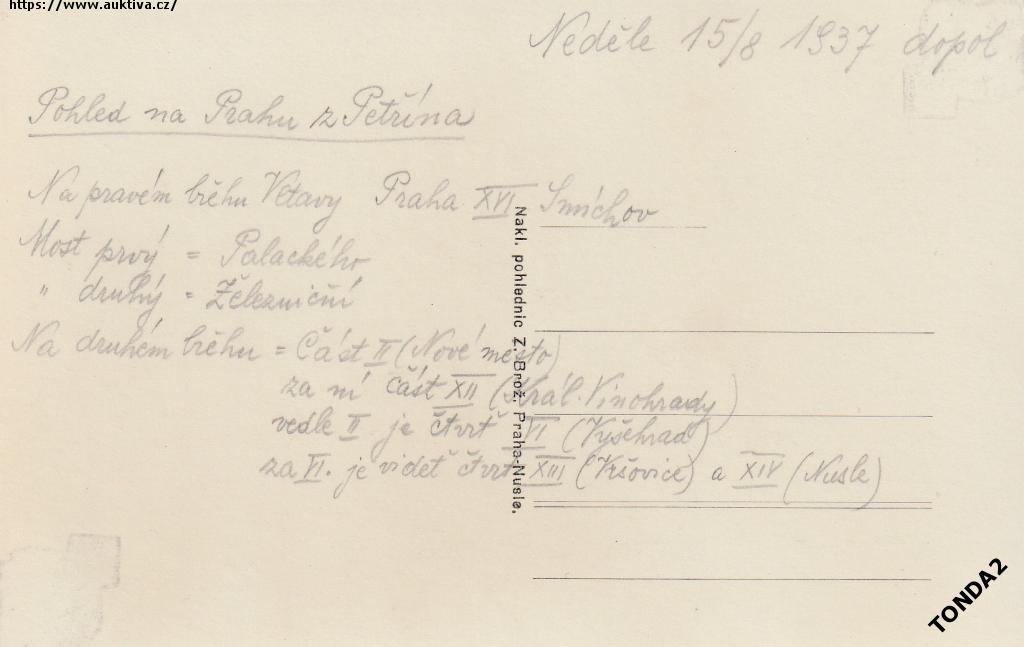 https://www.auktiva.cz/
Neděle 15/8 1937 dopol
Pohled na Prahu z Petřína
Na pravém břehu Vltavy Praha XVI Smíchov
Most prvý = Palackého
" druhý = Železniční
Na druhém břehu = Část II (Nové město)
za ní část XII (Král. Vinohrady)
vedle II je čtvrť VI (Vyšehrad)
za VI. je videť čtvrť XIII (Vršovice) a XIV (Nusle)
Nakl. pohlednic Z. Brož, Praha-Nusle.
TONDA2